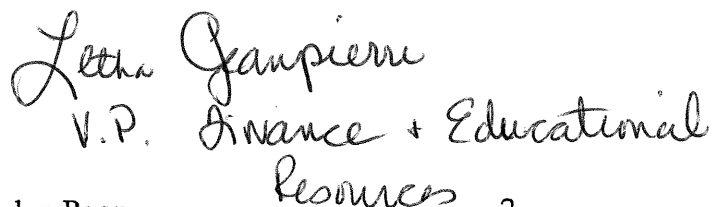 Letha Jeanpierre
V.P. Finance + Educational
Resources